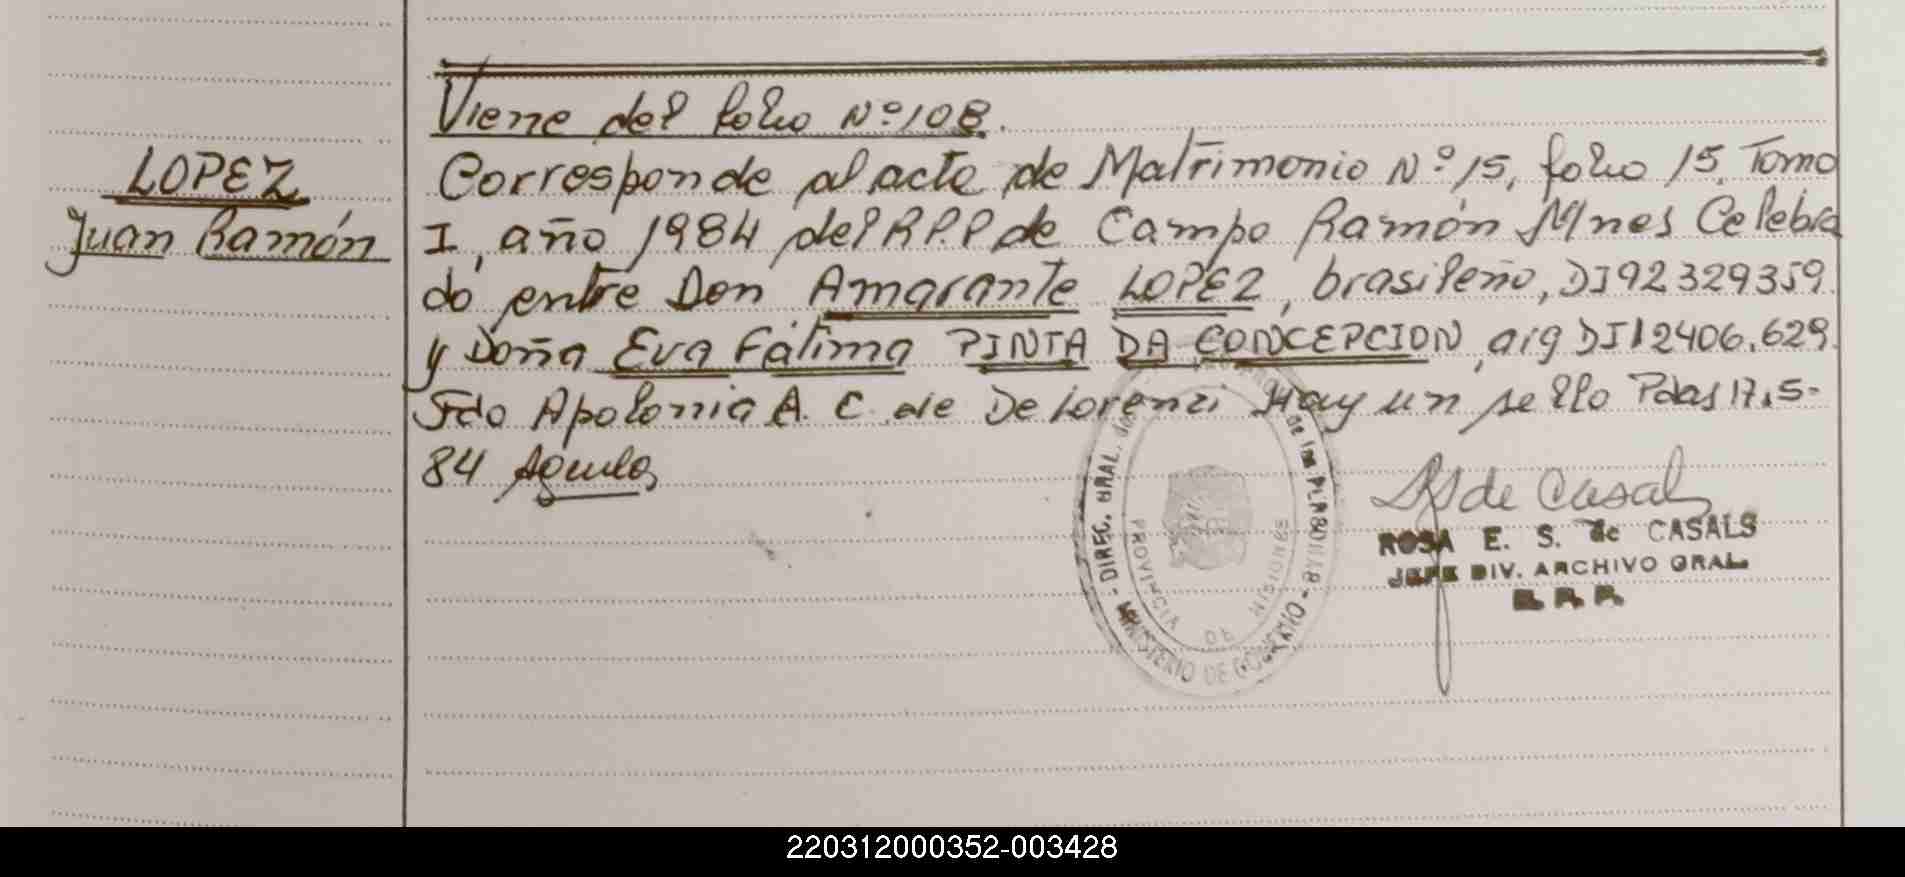 Viene del folio Nº 108.
LOPEZ
Juan Ramón
Corresponde al acta de Matrimonio Nº 15, folio 15, Tomo
I, año 1984 del R.P.P de Campo Ramón Mnes Celebra
do entre Don Amarante LOPEZ, brasileño, DI 92329359.
y Doña Eva Fátima PINTA DA CONCEPCION, arg DI 12406.629.
Fdo Apolonia A. C. de De Lorenzi Hay un sello Pdas 17.5-
84 Aguila
de Casals
ROSA E. S. de CASALS
JEFE DIV. ARCHIVO GRAL.
R. P. P.
DIREC. GRAL. de las PERSONAS
MINISTERIO DE GOBIERNO
PROVINCIA DE MISIONES
220312000352-003428